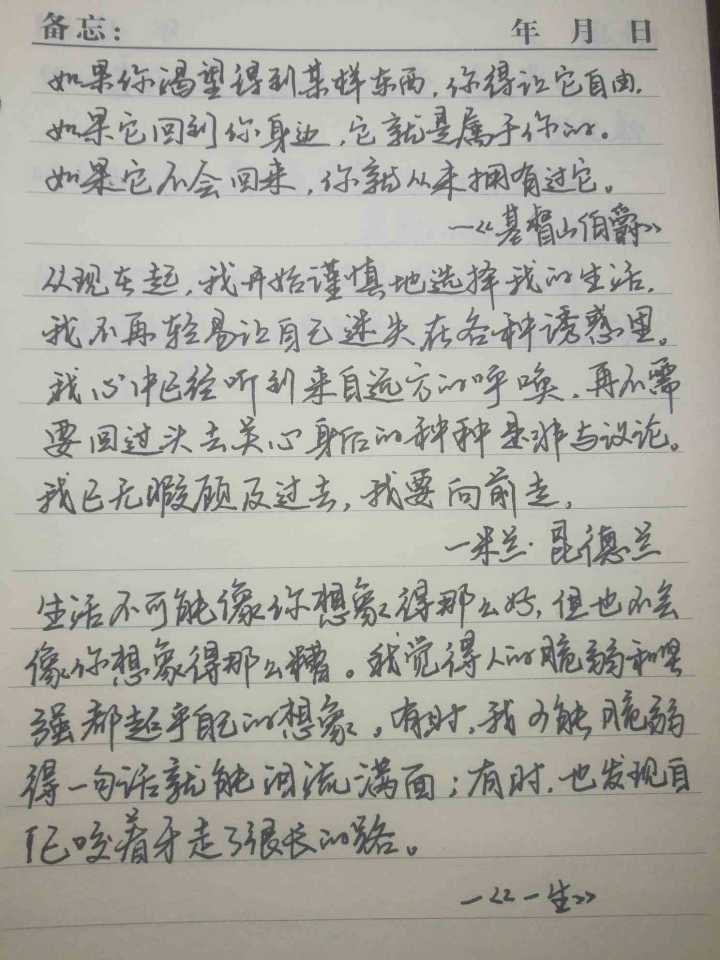 备忘： 年 月 日
如果你渴望得到某样东西，你得让它自由，
如果它回到你身边，它就是属于你的。
如果它不会回来，你就从来拥有过它。
—《基督山伯爵》
从现在起，我开始谨慎地选择我的生活，
我不再轻易让自己迷失在各种诱惑里。
我心中已经听到来自远方的呼唤，再不需
要回过头去关心身后的种种是非与议论。
我已无暇顾及过去，我要向前走，
—米兰·昆德兰
生活不可能像你想象得那么好，但也不会
像你想象得那么糟。我觉得人的脆弱和坚
强都起乎自己的想象。有时，我可能脆弱
得一句话就能泪流满面；有时，也发现自
己咬着牙走了很长的路。
—《一生》